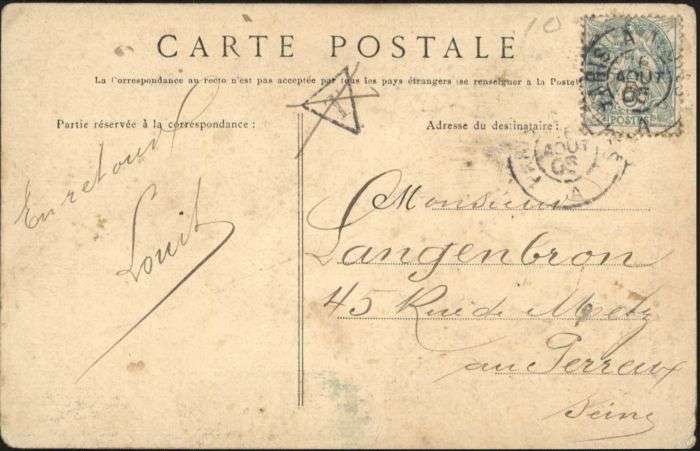 CARTE POSTALE
La Correspondance au recto n'est pas acceptée par tous les pays étrangers (se renseigner à la Poste)
Partie réservée à la correspondance :
Adresse du destinataire :
T
PARIS
AOUT
05
POSTES
AOUT
A
En retour
Louit
Monsieur
Langenbron
45 Rue de Metz
au Perreux
Seine
10